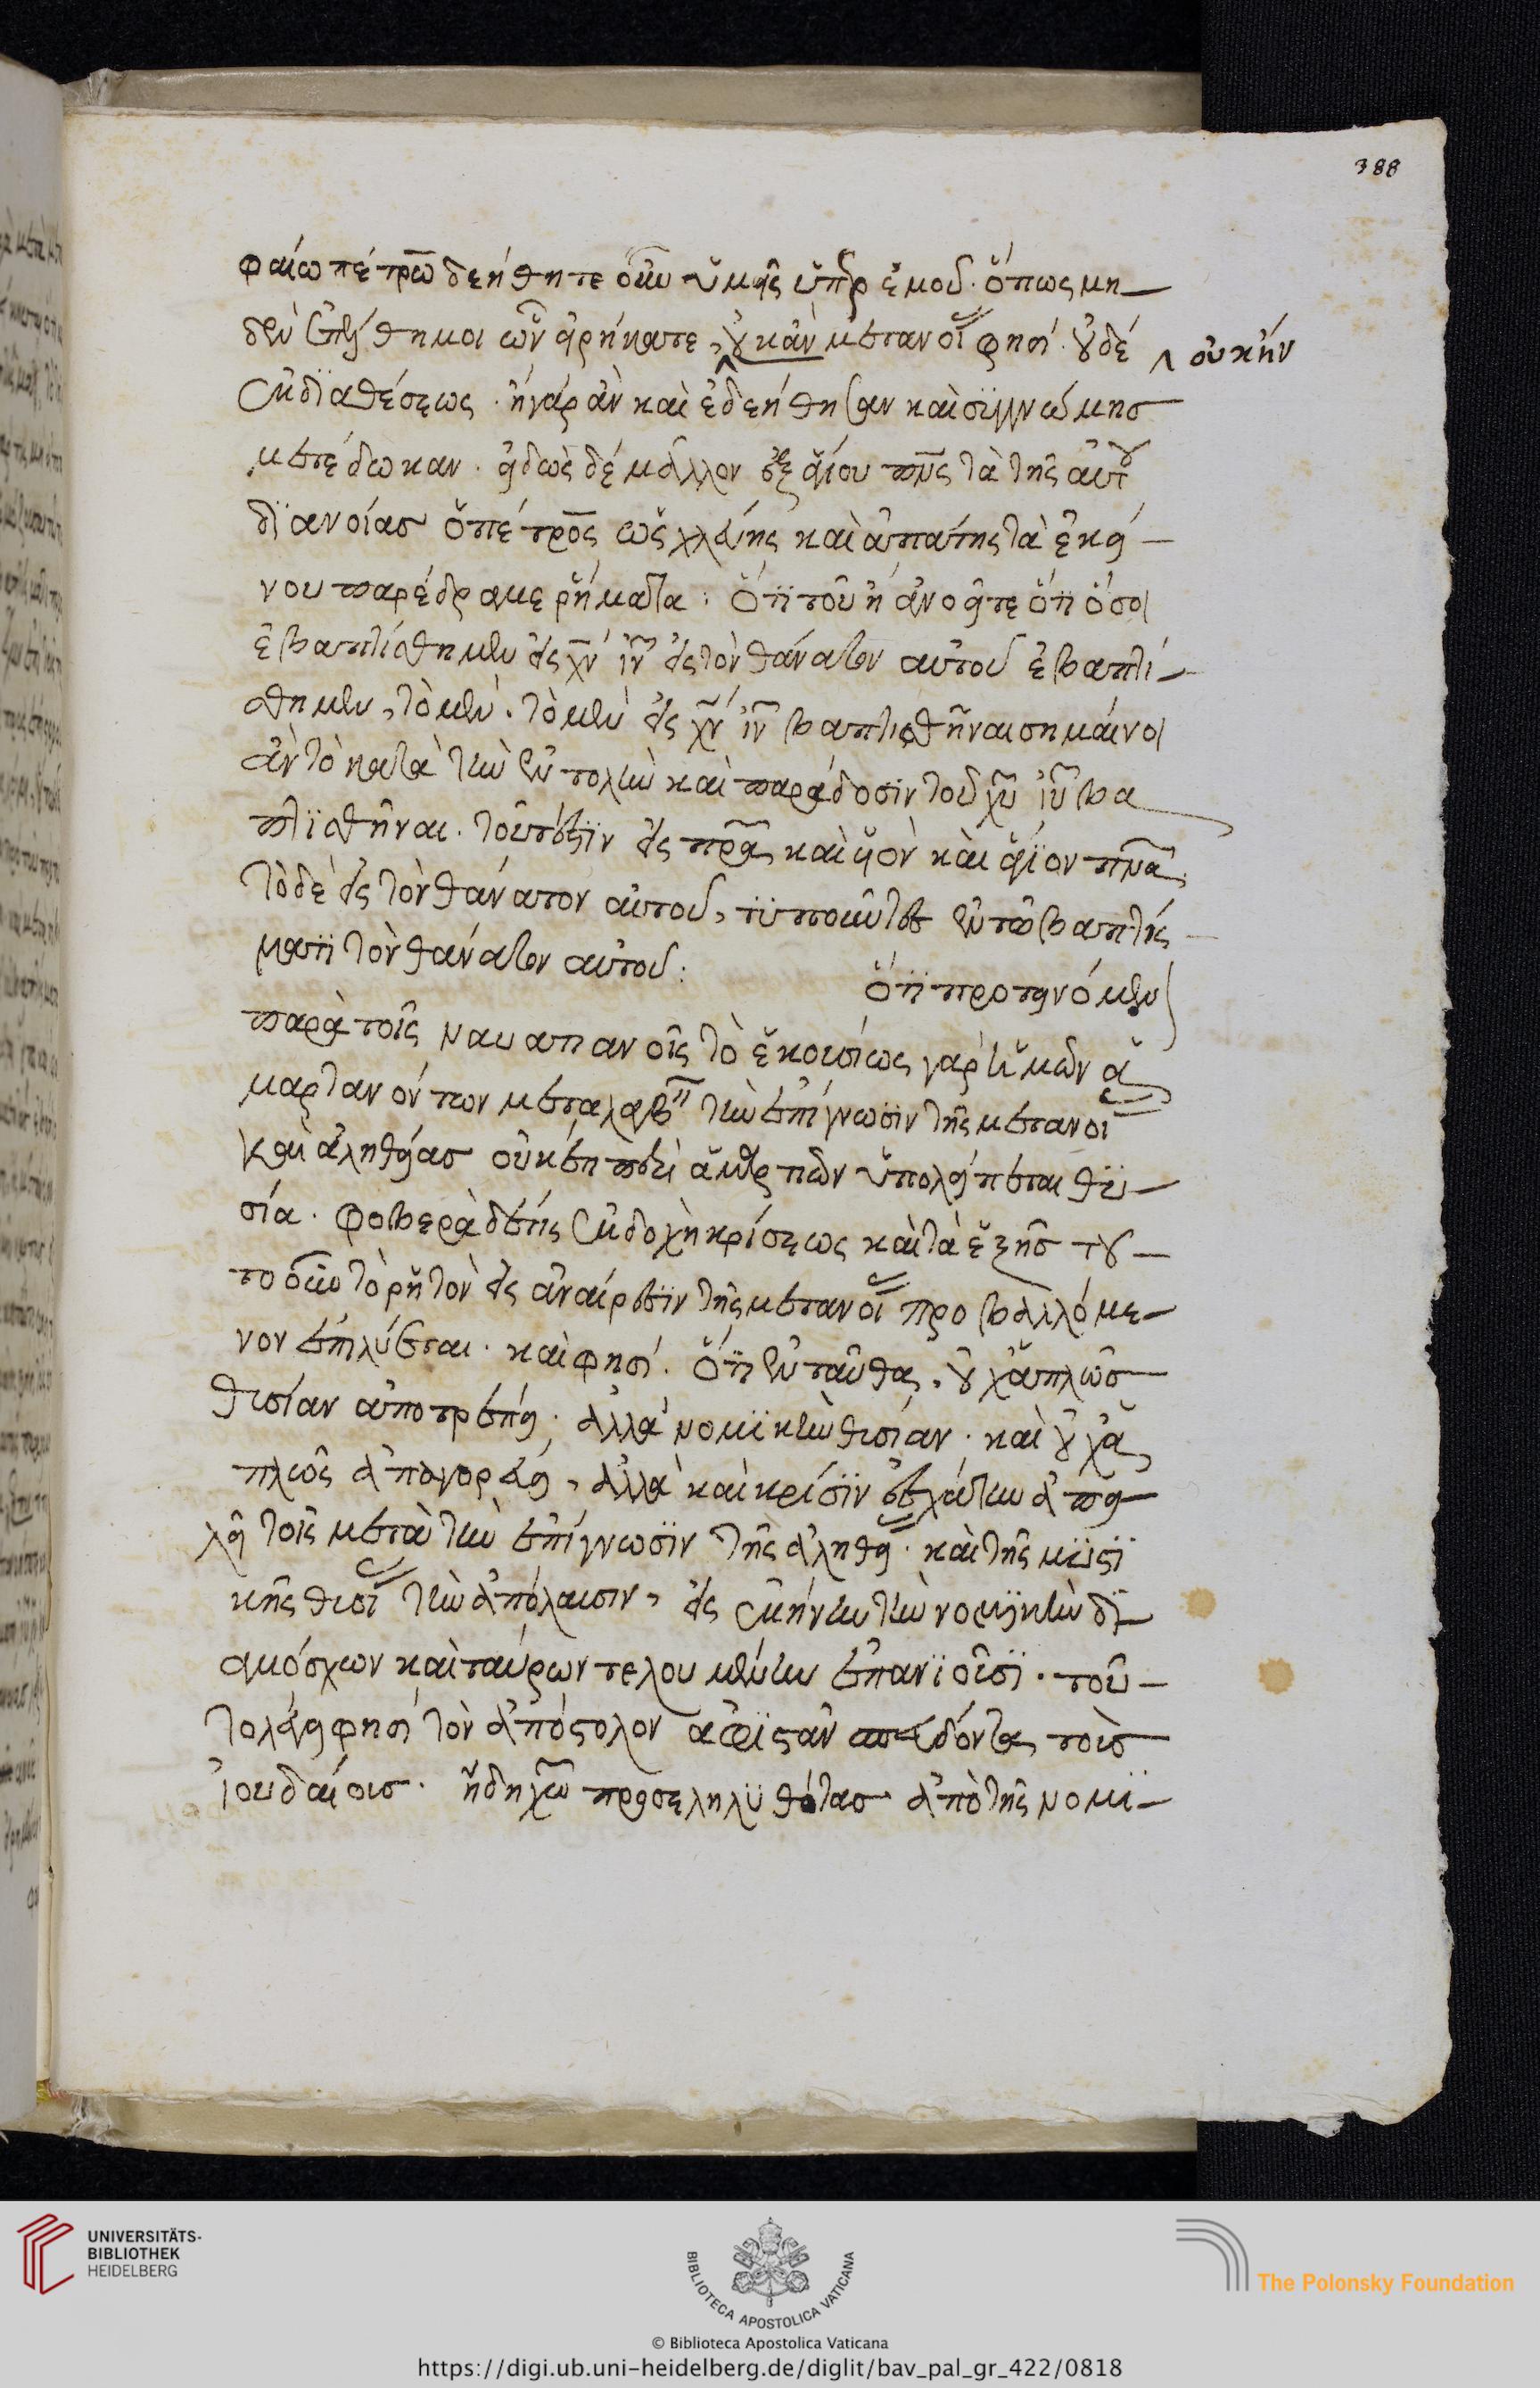 388
φαίω πέτρω δεήθητε οὖν ὑμεῖς ὑπὲρ ἐμοῦ. ὅπως μη
δὲν ἐπέλθη μοι ὧν εἰρήκατε, οὐκ ἂν μετανοί φησί. οὐδὲ
οὐκ ἦν
ἐκ διαθέσεως. ἦ γὰρ ἂν καὶ ἐδεήθησαν καὶ συγγνώμης
μετέδωκαν. εἰδὼς δὲ μᾶλλον ὁ ἐξ ἁγίου πνς τὰ τῆς αὐτοῦ
διανοίας ὁ πέτρος ὡς χλεύης καὶ ἀπάτης τὰ ἐκεί
νου παρέδραμε ῥήματα: ὅτι τοῦ ἢ ἀγνοεῖτε ὅτι ὅσοι
ἐβαπτίσθημεν εἰς χν ιν εἰς τὸν θάνατον αὐτοῦ ἐβαπτί
σθημεν, τὸ μὲν. τὸ μὲν εἰς χν ιν βαπτισθῆναι σημαίνοι
ἂν τὸ κατὰ τὴν ἐντολὴν καὶ παράδοσιν τοῦ χυ ιυ βα
πτισθῆναι. τουτέστιν εἰς πρα καὶ υἱὸν καὶ ἅγιον πνα,
τὸ δὲ εἰς τὸν θάνατον αὐτοῦ, τυποῦντες ἐν τῷ βαπτίσ
ματι τὸν θάνατον αὐτοῦ:
ὅτι προτεινόμεν
παρὰ τοῖς ναυατιανοῖς τὸ ἑκουσίως γὰρ ἡμῶν ἁ
μαρτανόντων μετὰ λαβ τὴν ἐπίγνωσιν τῆς μετανοί
καὶ ἀληθείας οὐκέτι περὶ ἁμαρτιῶν ὑπολείπεται θυ
σία. φοβερὰ δέ τις ἐκδοχὴ κρίσεως καὶ τὰ ἑξῆς τοῦ
το οὖν τὸ ῥητὸν εἰς ἀναίρεσιν τῆς μετανοί προβαλλόμε
νον ἐπιλύεται. καὶ φησί. ὅτι ἐνταῦθα, οὐχ ἁπλῶς
θυσίαν ἀποτρέπει. ἀλλὰ νομικὴν θυσίαν. καὶ οὐχ ἁ
πλῶς ἀπαγορεύει, ἀλλὰ καὶ κρίσιν ἐσχάτην ἀπει
λεῖ τοῖς μετὰ τὴν ἐπίγνωσιν τῆς ἀληθεί. καὶ τῆς μυστι
κῆς θυσί τὴν ἀπόλαυσιν, εἰς ἐκείνην τὴν νομικὴν δι
αμόσχων καὶ ταύρων τελουμένην ἐπανιοῦσι. τοῦ
το λέγει φησὶ τὸν ἀπόστολον ἀφιστᾶν σπεύδοντα τοὺς
ἰουδαίους. ἤδη χω προσεληλυθότας ἀπὸ τῆς νομι
UNIVERSITÄTS-
BIBLIOTHEK
HEIDELBERG
BIBLIOTECA APOSTOLICA VATICANA
The Polonsky Foundation
© Biblioteca Apostolica Vaticana
https://digi.ub.uni-heidelberg.de/diglit/bav_pal_gr_422/0818